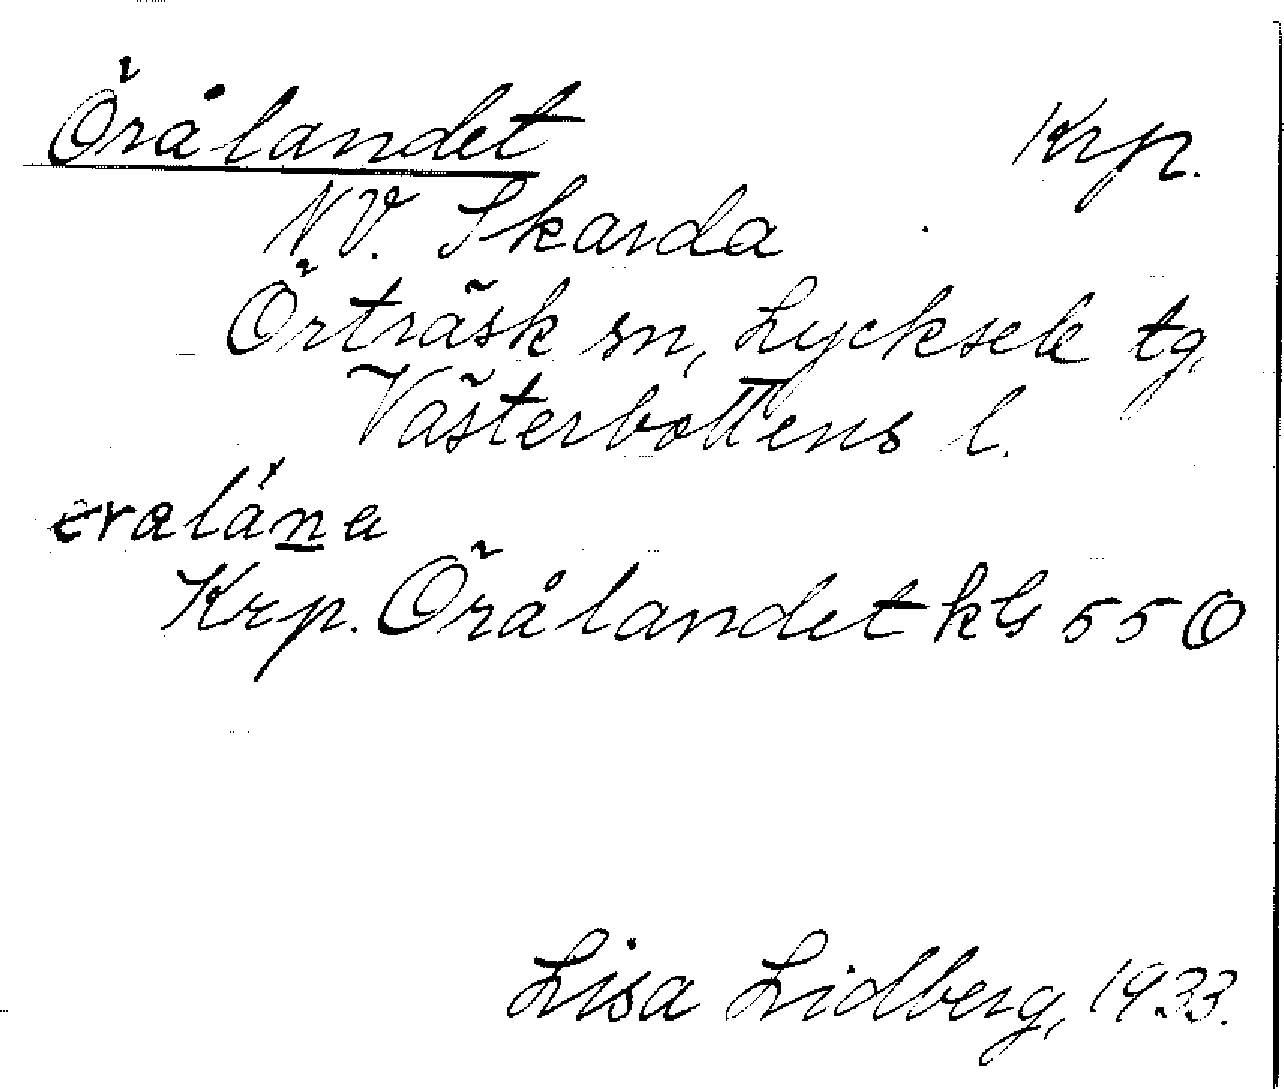 Örålandet Krp.
N.V. Skarda
Örträsk sn, Lycksele tg,
Västerbottens l.
Krp. Örålandet kG 55 O
Lisa Lidberg, 1933.